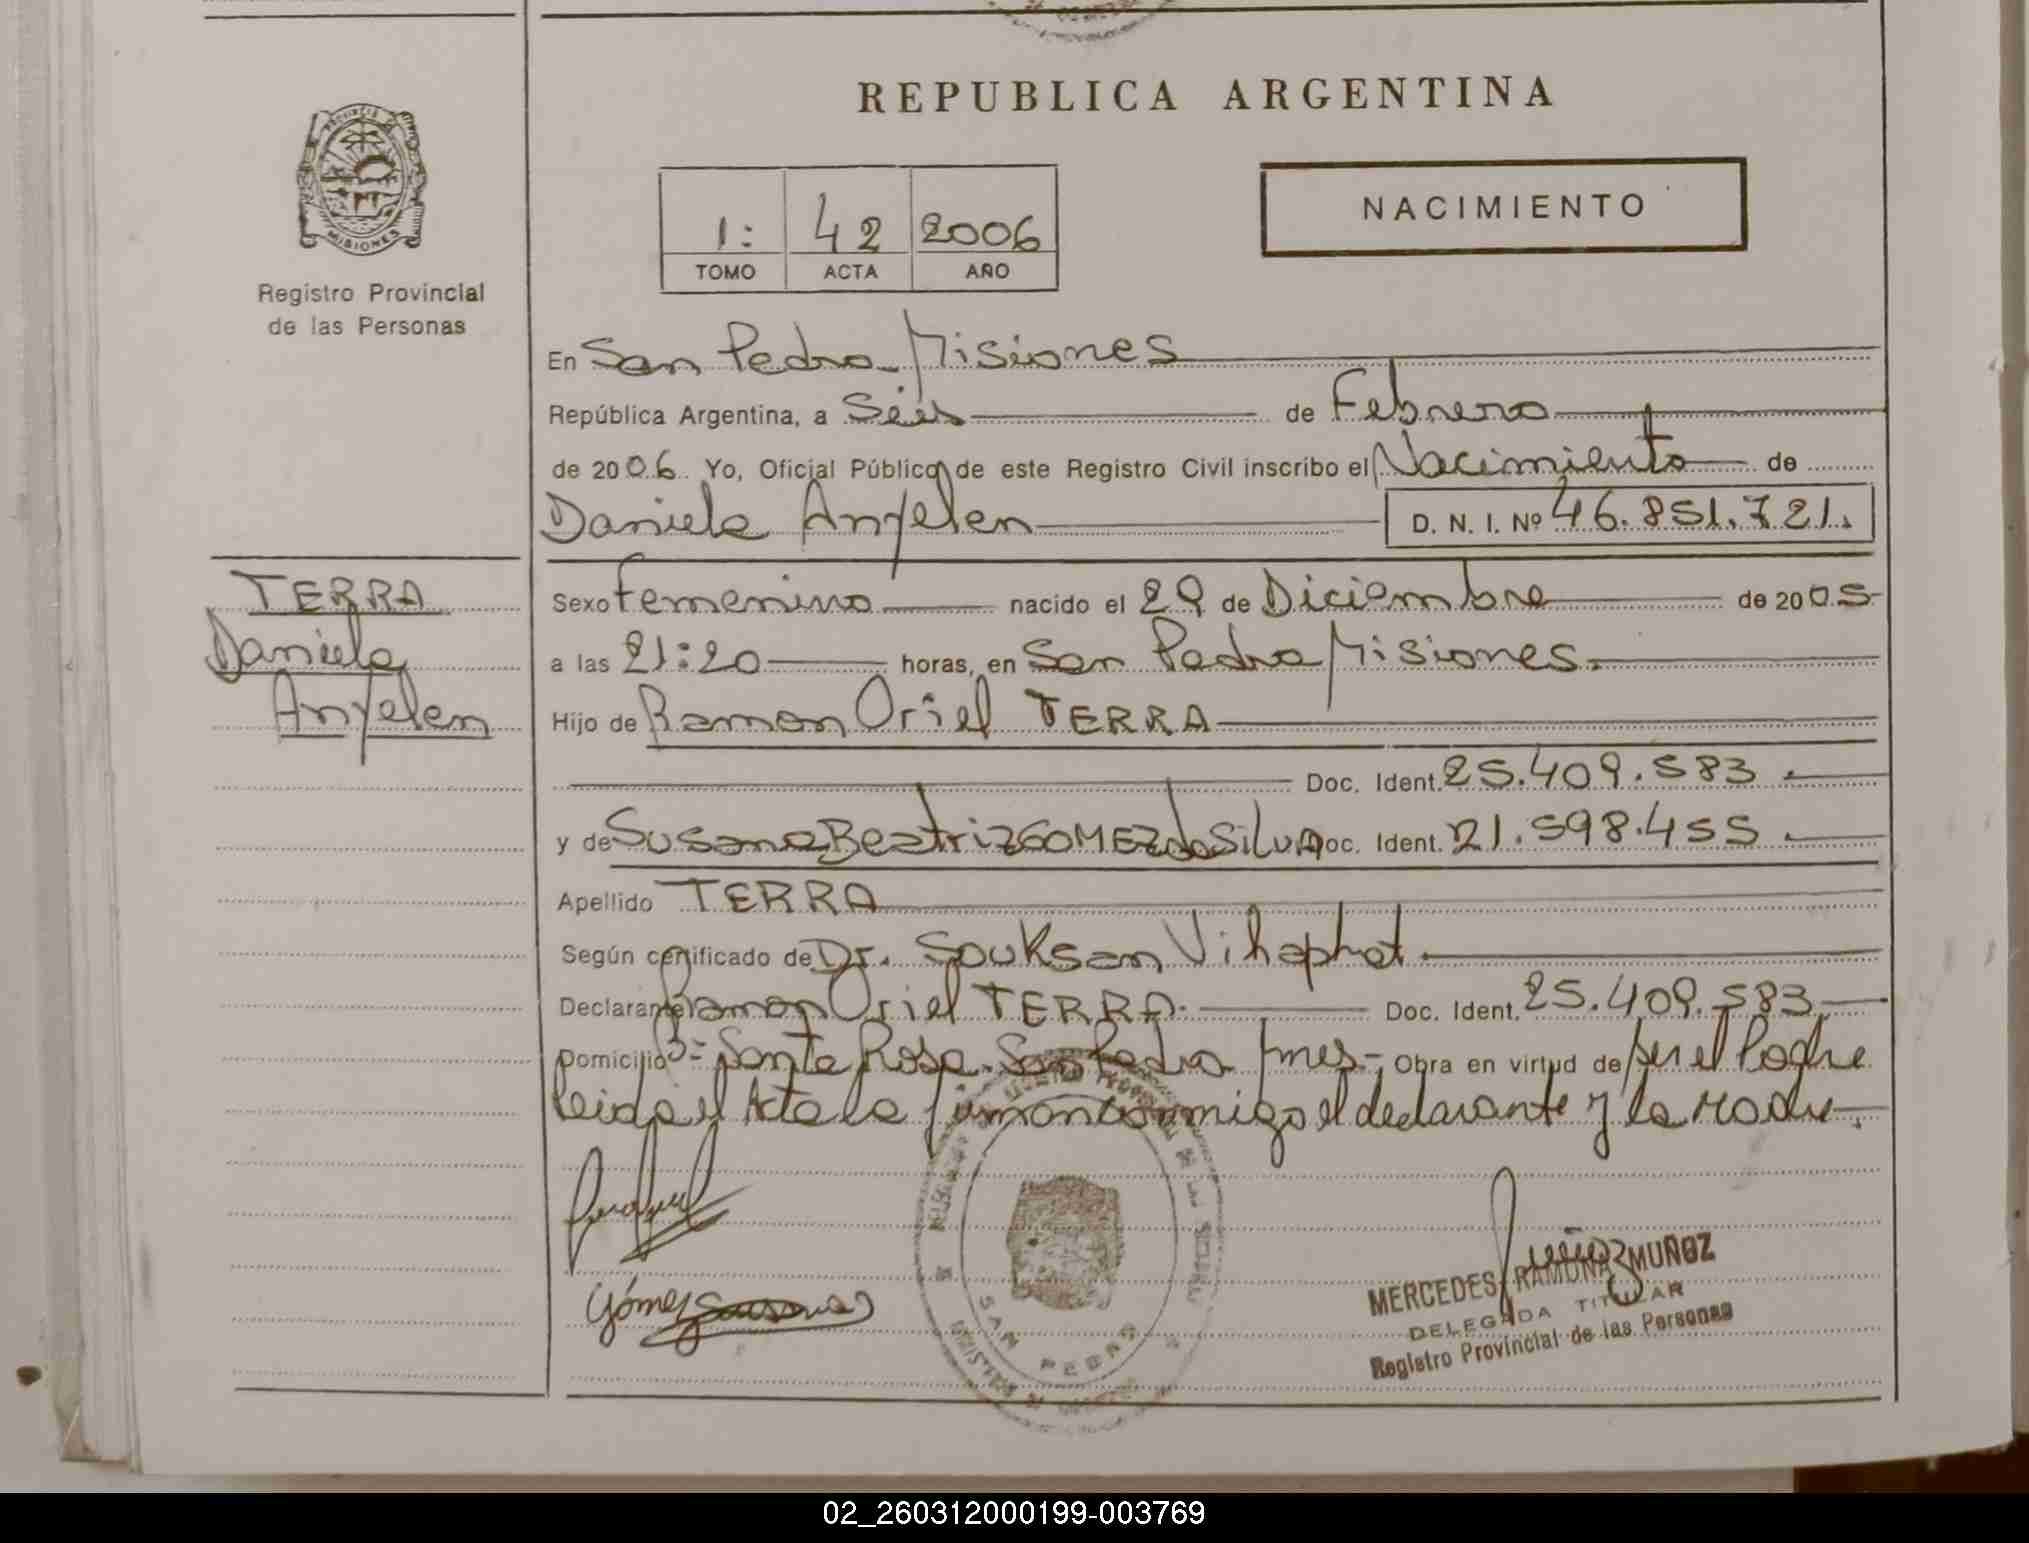 REPUBLICA ARGENTINA
PROVINCIA
MISIONES
Registro Provincial
de las Personas
1: 42 2006
TOMO ACTA AÑO
NACIMIENTO
En San Pedro - Misiones
República Argentina, a Séis de Febrero
de 2006. Yo, Oficial Público de este Registro Civil inscribo el Nacimiento de
Daniela Anyelen D. N. I. Nº 46.851.721.
TERRA
Daniela
Anyelen
Sexo Femenino nacido el 29 de Diciembre de 2005
a las 21:20 horas, en San Pedro Misiones.
Hijo de Ramon Oriel TERRA
Doc. Ident. 25.409.583.
y de Susana Beatriz GOMEZ da SilvA Doc. Ident. 21.598.455.
Apellido TERRA
Según certificado de Dr. Souksan Vihaphat.
Declarante Ramon Oriel TERRA. Doc. Ident. 25.409.583
Domicilio Bº= Santa Rosa. San Pedro Mnes-, Obra en virtud de ser el Padre
leida el Acta la firman conmigo el declarante y la Madre.
Gómez Susana
SAN PEDRO
MERCEDES RAMONA MUÑOZ
DELEGADA TITULAR
Registro Provincial de las Personas
02_260312000199-003769